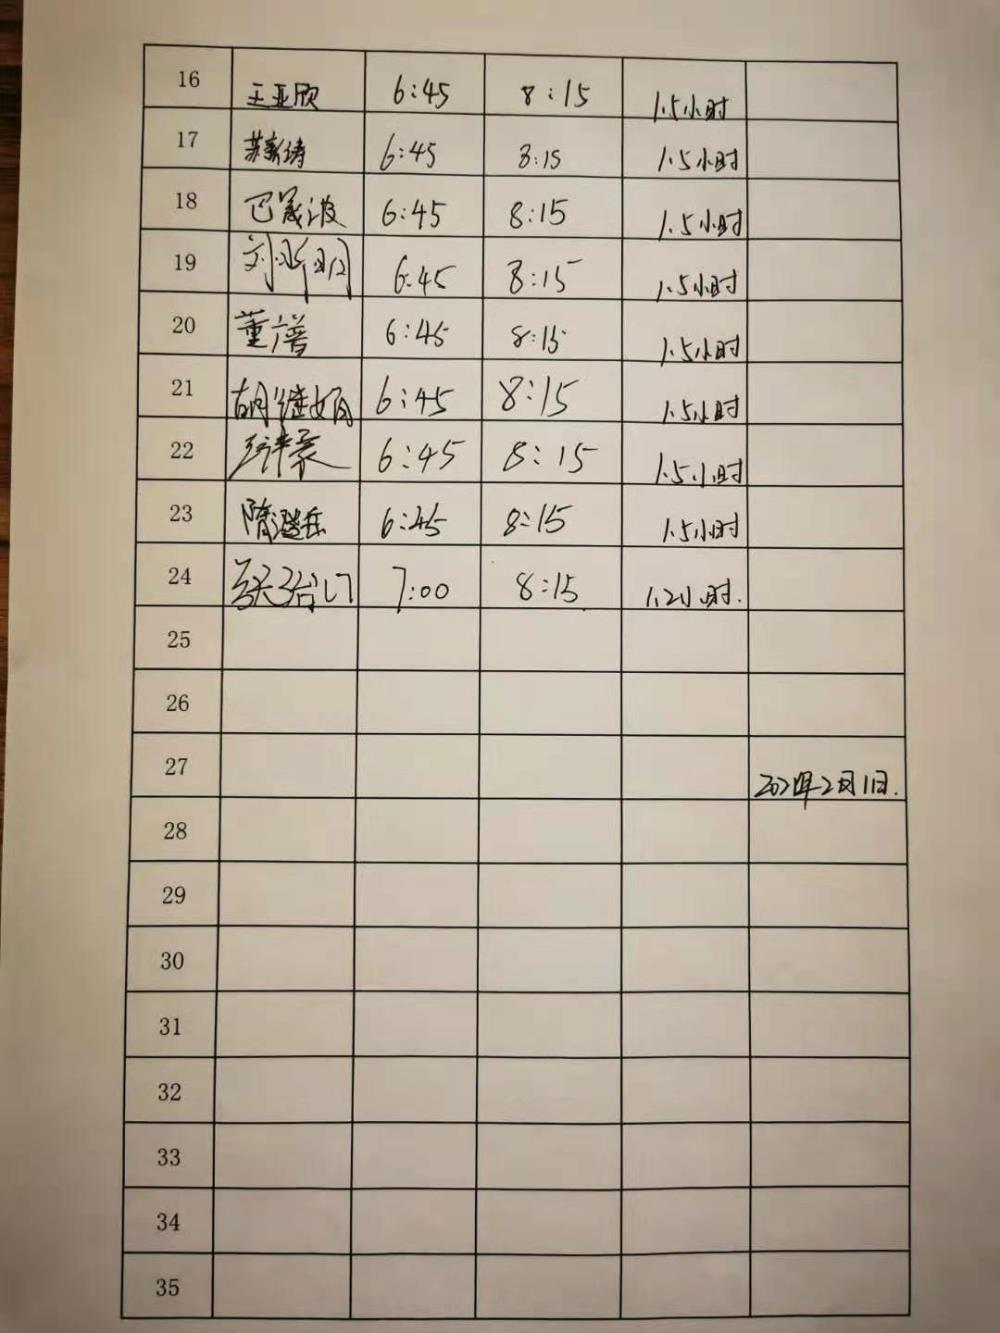 16 王亚欣 6:45 8:15 1.5小时
17 苏新涛 6:45 8:15 1.5小时
18 巴晟波 6:45 8:15 1.5小时
19 6:45 8:15 1.5小时
20 董谱 6:45 8:15 1.5小时
21 胡继娟 6:45 8:15 1.5小时
22 6:45 8:15 1.5小时
23 隋澄岳 6:45 8:15 1.5小时
24 7:00 8:15 1.2小时.
25
26
27 2021年2月1日.
28
29
30
31
32
33
34
35